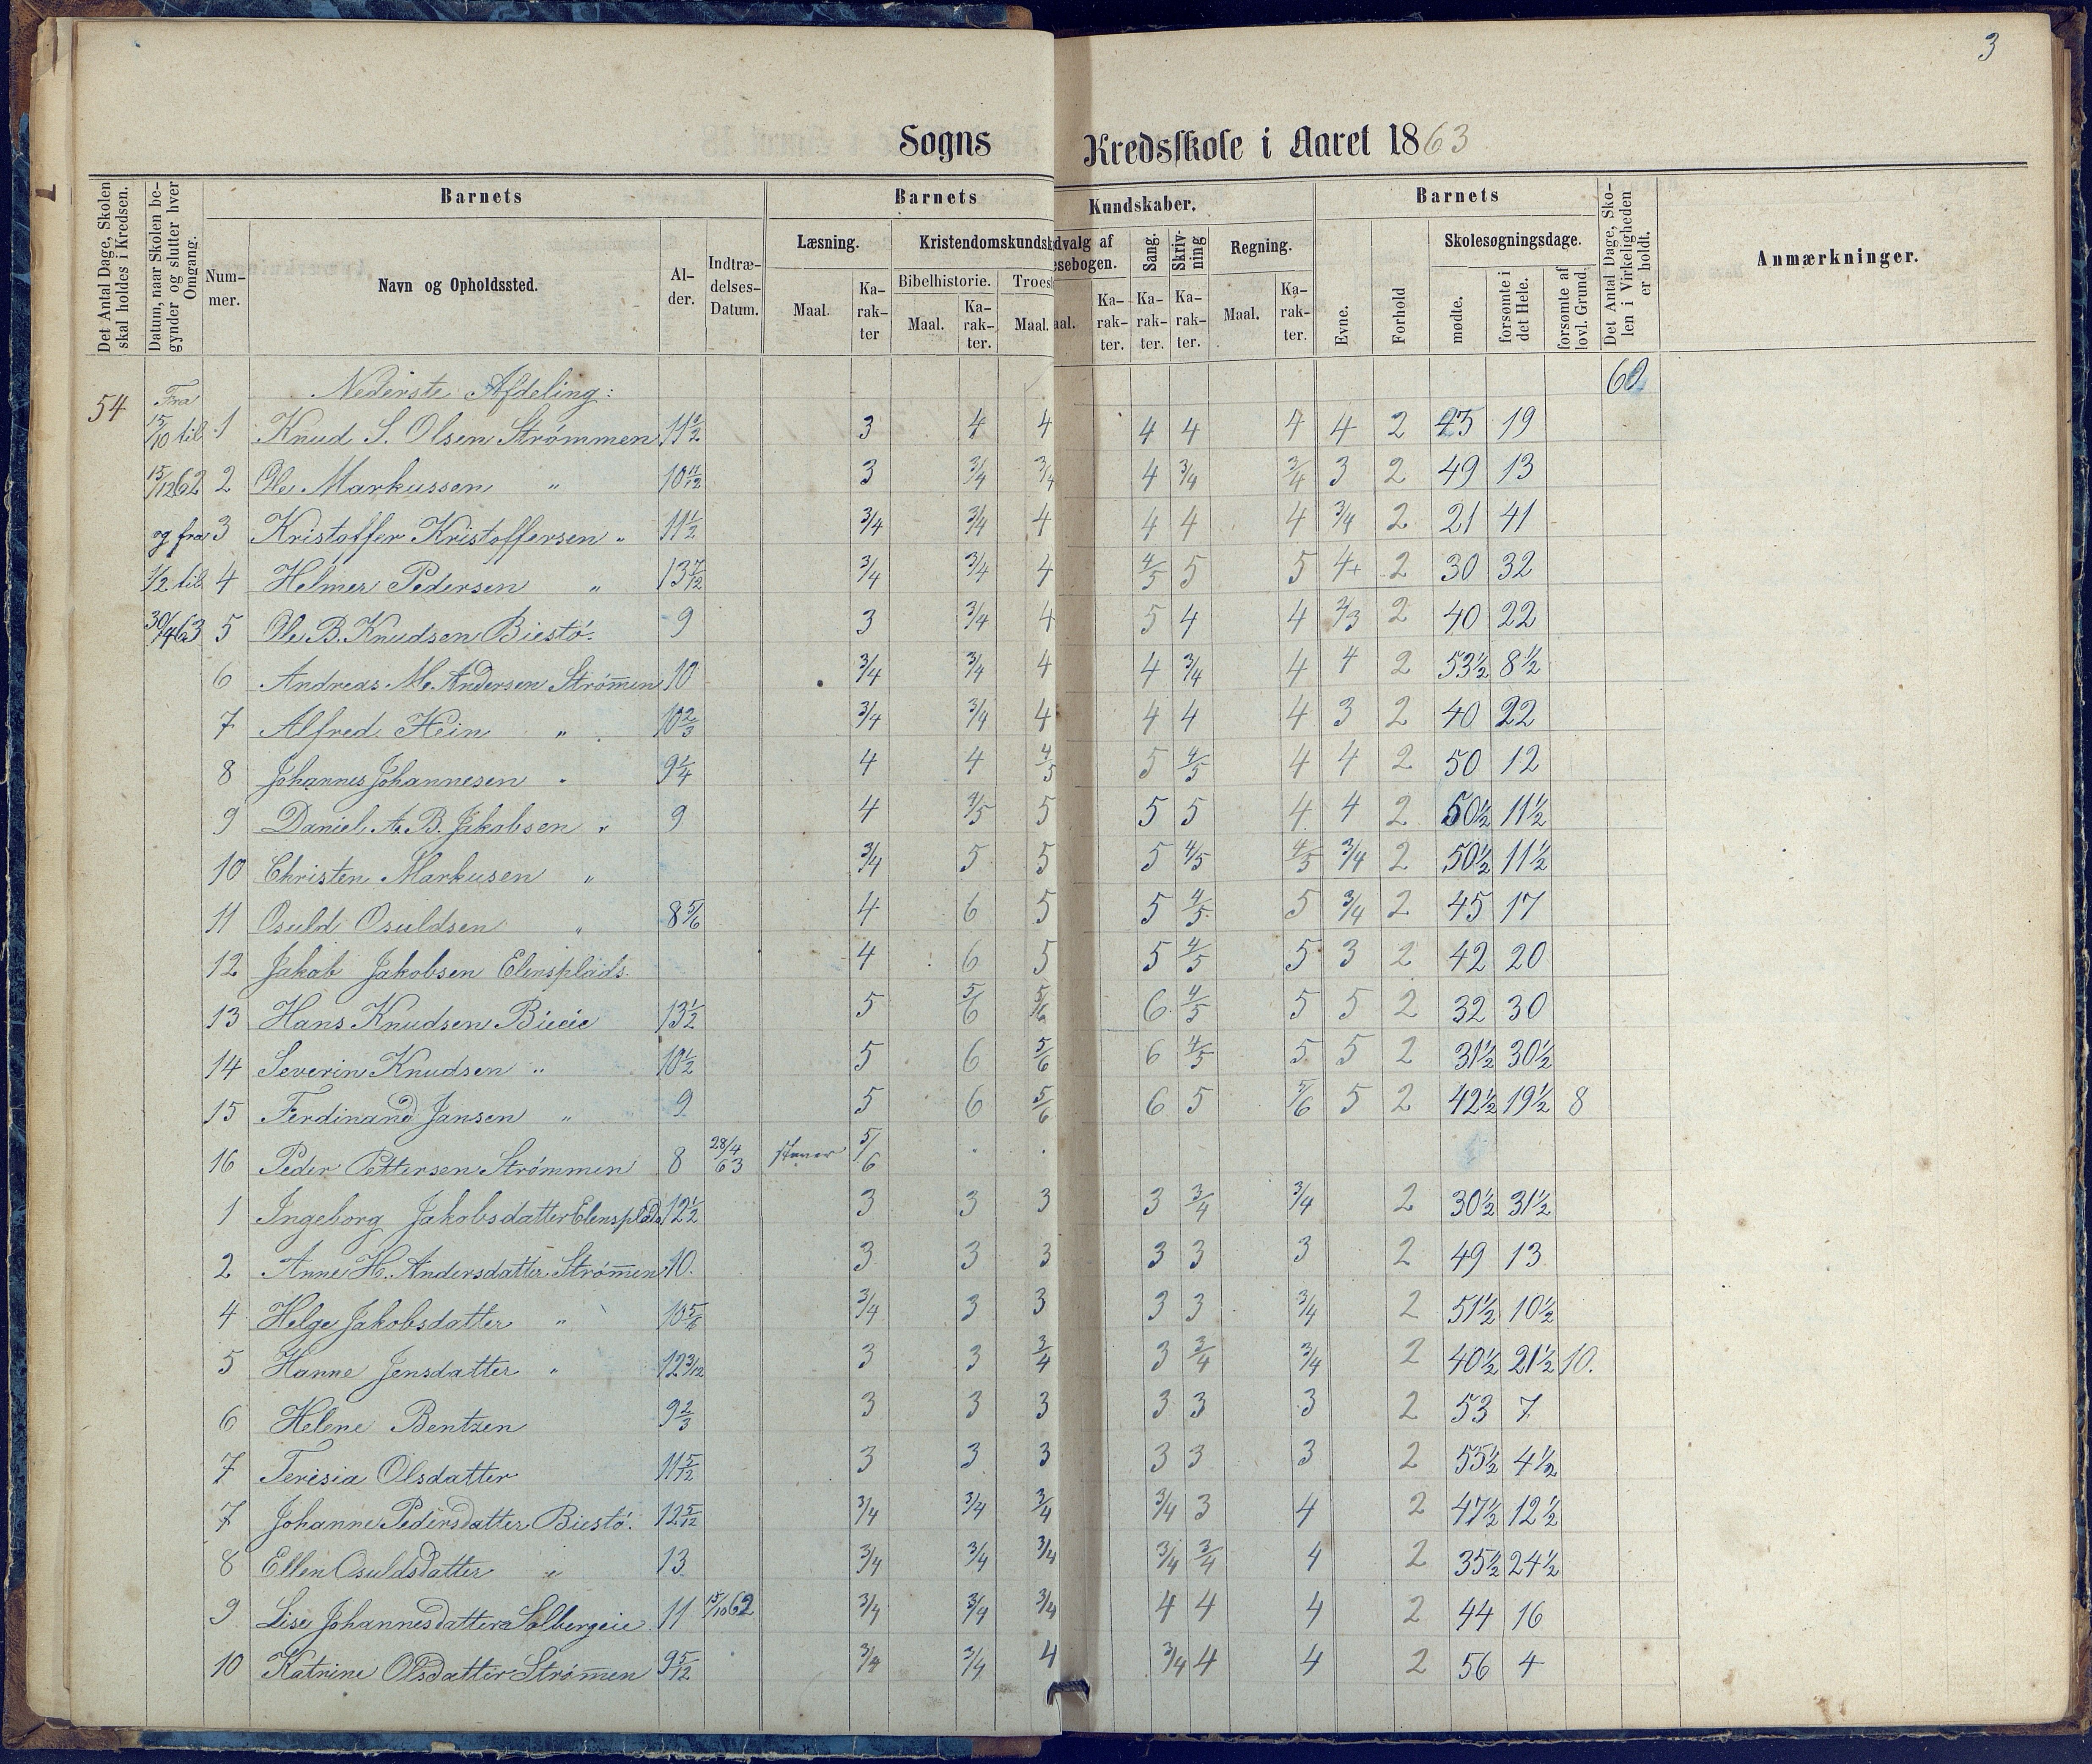 3
Sogns Kredsskole i Aaret 1863
Det Antal Dage, Skolen skal holdes i Kredsen.
Datum, naar Skolen begynder og slutter hver Omgang.
Barnets
Nummer.
Navn og Opholdssted.
Alder.
Indtrædelses-Datum.
Barnets Kundskaber.
Læsning.
Maal.
Karakter
Kristendomskundsk
Bibelhistorie.
Maal.
Karakter.
Troes
Maal.
dvalg af
esebogen.
aal.
Karakter.
Sang.
Karakter.
Skrivning
Karakter.
Regning.
Maal.
Karakter.
Barnets
Evne.
Forhold
Skolesøgningsdage.
mødte.
forsømte i det Hele.
forsømte af lovl. Grund.
Det Antal Dage, Skolen i Virkeligheden er holdt.
Anmærkninger.
54 Fra Nederste Afdeling: 60
15/10 til 1 Knud S. Olsen Strømmen 11 1/2 3 4 4 4 4 4 4 2 45 19
15/12 62 2 Ole Markussen " 10 11/12 3 3/4 3/4 4 3/4 3/4 3 2 49 13
og fra 3 Kristoffer Kristoffersen " 11 1/2 3/4 3/4 4 4 4 4 3/4 2 21 41
1/2 til 4 Helmer Pedersen " 13 7/12 3/4 3/4 4 4/5 5 5 4+ 2 30 32
30/4 63 5 Ole B. Knudsen Biestø. 9 3 3/4 4 5 4 4 2/3 2 40 22
6 Andreas M. Andersen Strømen 10 3/4 3/4 4 4 3/4 4 4 2 53 1/2 8 1/2
7 Alfred Hein " 10 2/3 3/4 3/4 4 4 4 4 3 2 40 22
8 Johannes Johannesen " 9 1/4 4 4 4/5 5 4/5 4 4 2 50 12
9 Daniel A. B. Jakobsen " 9 4 4/5 5 5 5 4 4 2 50 1/2 11 1/2
10 Christen Markusen " 3/4 5 5 5 4/5 4/5 3/4 2 50 1/2 11 1/2
11 Osuld Osuldsen " 8 5/6 4 6 5 5 4/5 5 3/4 2 45 17
12 Jakob Jakobsen Elensplads. 4 6 5 5 4/5 5 3 2 42 20
13 Hans Knudsen Bieeie 13 1/2 5 5/6 5/6 6 4/5 5 5 2 32 30
14 Severin Knudsen " 10 1/2 5 6 5/6 6 4/5 5 5 2 31 1/2 30 1/2
15 Ferdinand Jansen " 9 5 6 5/6 6 5 5/6 5 2 42 1/2 19 1/2 8
16 Peder Pettersen Strømmen 8 28/4 63 staver 5/6 " "
1 Ingeborg Jakobsdatter Elensplads 12 1/2 3 3 3 3 3/4 3/4 2 30 1/2 31 1/2
2 Anne H. Andersdatter Strømen 10. 3 3 3 3 3 3 2 49 13
4 Helge Jakobsdatter " 10 5/6 3/4 3 3 3 3 3/4 2 51 1/2 10 1/2
5 Hanne Jensdatter " 12 3/12 3 3 3/4 3 3/4 3/4 2 40 1/2 21 1/2 10.
6 Helene Bentzen 9 2/3 3 3 3 3 3 3 2 53 7
7 Terisia Olsdatter 11 5/12 3 3 3 3 3 3 2 55 1/2 4 1/2
7 Johanne Pedersdatter Biestø. 12 5/12 3/4 3/4 3/4 3/4 3 4 2 47 1/2 12 1/2
8 Ellen Osuldsdatter " 13 3/4 3/4 3/4 3/4 3/4 4 2 35 1/2 24 1/2
9 Lise Johannesdatter Solbergeie 11 15/10 62 3/4 3/4 3/4 4 4 4 2 44 16
10 Katrine Olsdatter Strømen 9 5/12 3/4 3/4 4 3/4 4 4 2 56 4